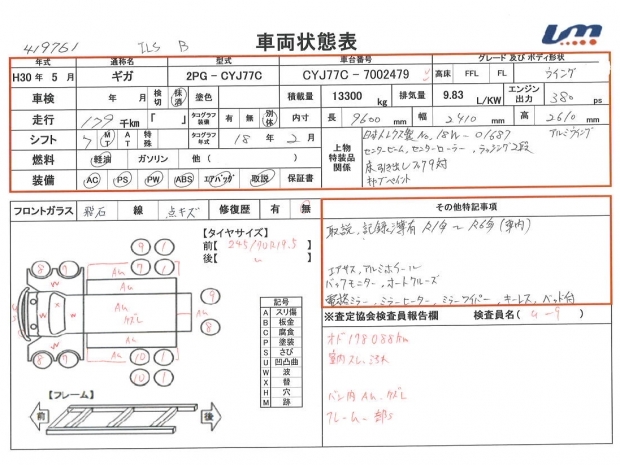 419761 ILS B 車両状態表 Um
年式 通称名 型式 車台番号 グレード及びボディ形状
H30年 5月 ギガ 2PG-CYJ77C CYJ77C-7002479 高床 FFL FL ウイング
車検 年 月 検切 抹消 塗色 積載量 13300 kg 排気量 9.83 L/KW エンジン出力 380 ps
走行 179 千km 「 」 タコグラフ装備 有 無 別体 内寸 長 9600 mm 幅 2410 mm 高 2610 mm
シフト 7 MT AT 特殊 タコグラフ年式 18年 2月 上物特装品関係 日本トレクス製 No,18W-01687 アルミウイング
燃料 軽油 ガソリン 他( ) センターセーム、センターローラー、ラッシング2段
装備 AC PS PW ABS エアバッグ 取説 保証書 床引き出しフック9対
キャブペイント
フロントガラス 飛石 線 点キズ 修復歴 有 無 その他特記事項
【タイヤサイズ】 取説、記録簿有 R1年〜R6年(車内)
前【 245/70R19.5 】
後【 〃 】
エアサス、アルミホイール
バックモニター、オートクルーズ
電格ミラー、ミラーヒーター、ミラーワイパー、キーレス、ベッド台
9 1 7 1 8 7 8 7 9 8 7 1 10 1 10 1
W W W X AU AU クズレ AU
記号
A スリ傷
B 板金
C 腐食
P 塗装
S さび
U 凹凸曲
W 波
X 替
H 穴
M 跡
※査定協会検査員報告欄 検査員名( )
オド178088km
室内スレ、汚れ
バン内AU、クズレ
フレーム一部S
【フレーム】
前 後